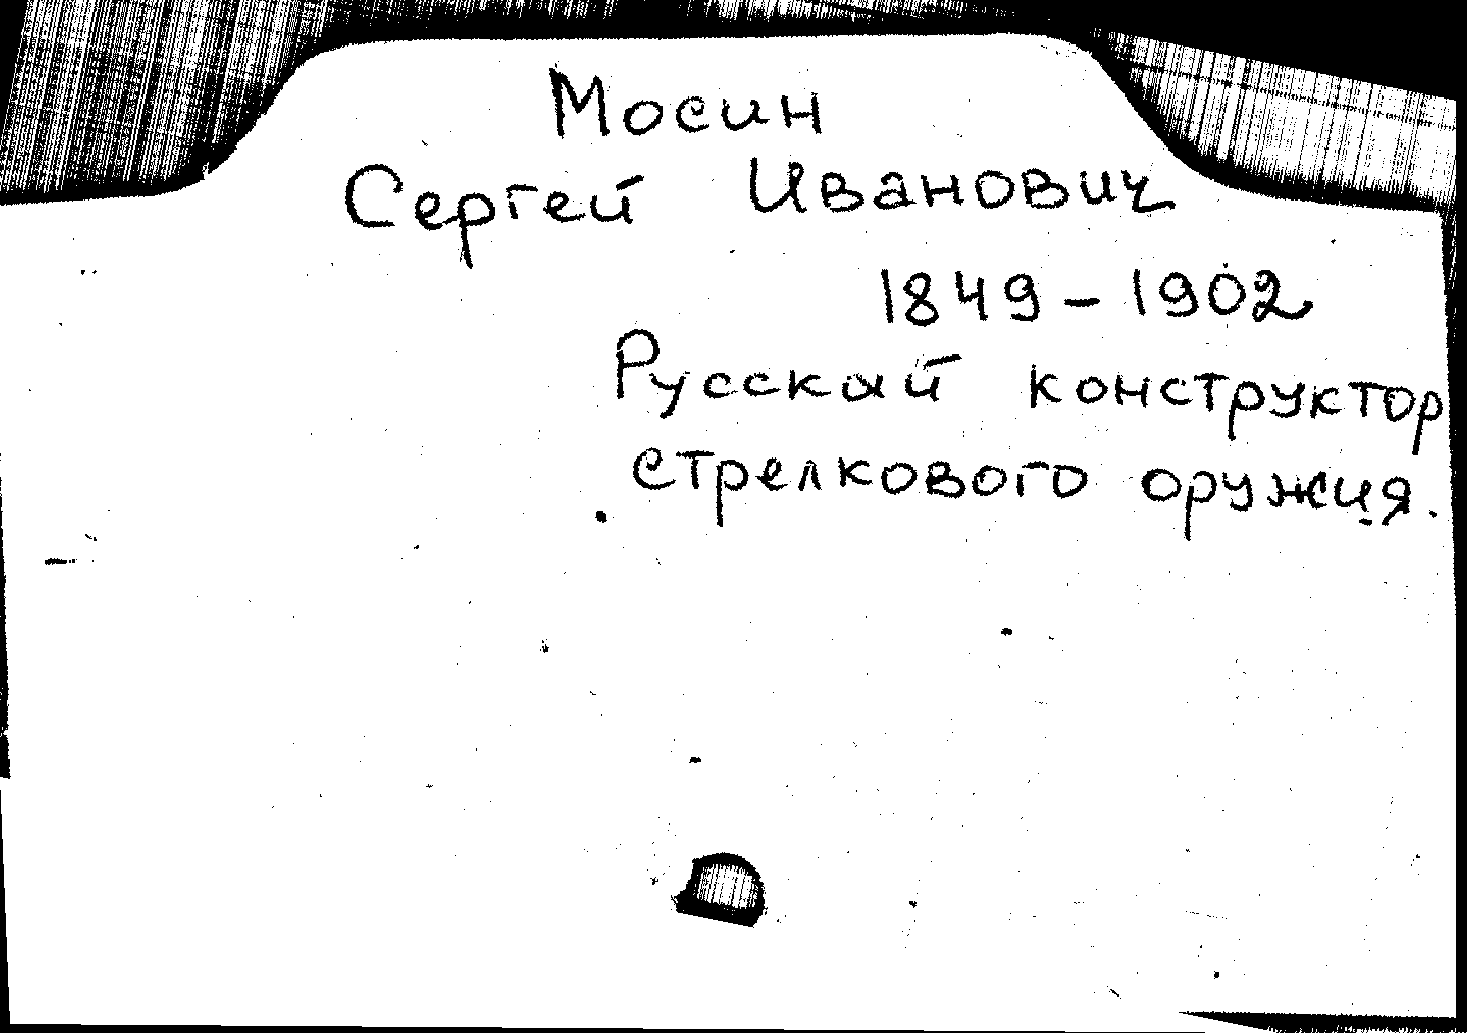 Мосин
Сергей Иванович
1849-1902
Русский конструктор
стрелкового оружия.